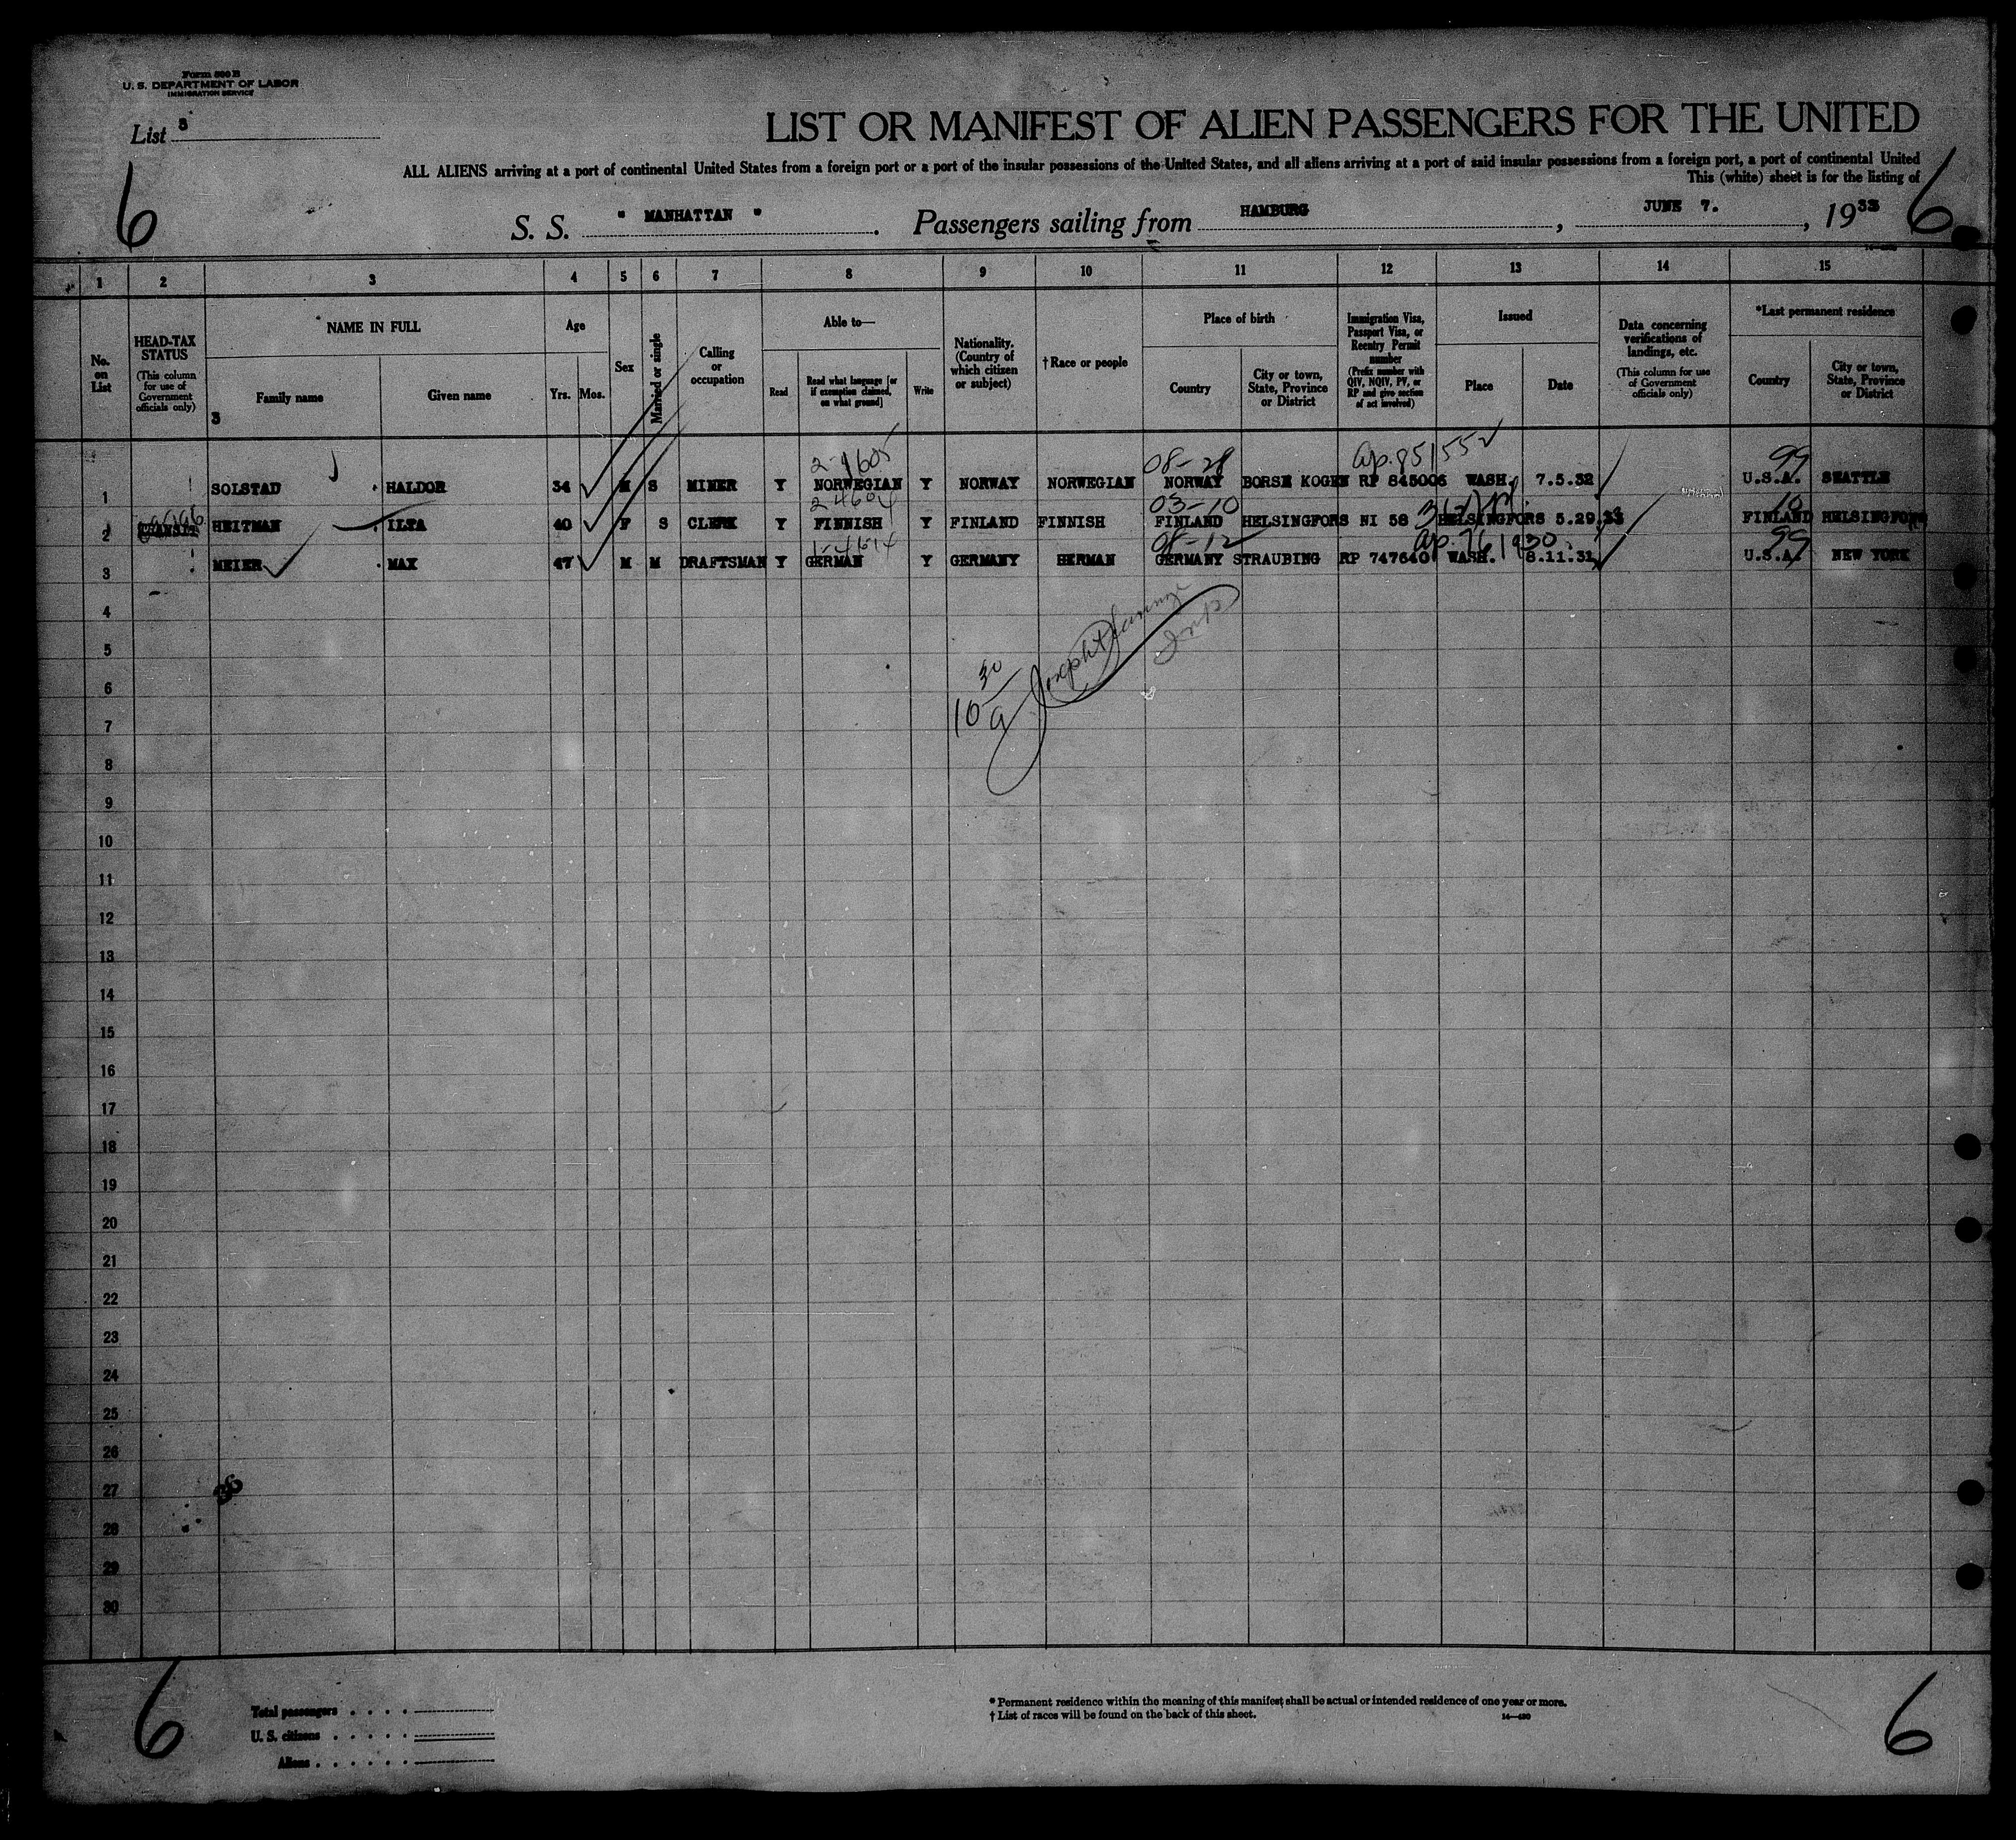 Form 500 B
U. S. DEPARTMENT OF LABOR
IMMIGRATION SERVICE
List 3
LIST OR MANIFEST OF ALIEN PASSENGERS FOR THE UNITED
ALL ALIENS arriving at a port of continental United States from a foreign port or a port of the insular possessions of the United States, and all aliens arriving at a port of said insular possessions from a foreign port, a port of continental United
This (white) sheet is for the listing of
6 6
S. S. " MANHATTAN " . Passengers sailing from HAMBURG , JUNE 7. , 1933
1 2 3 4 5 6 7 8 9 10 11 12 13 14 15
No. on List
HEAD-TAX STATUS
(This column for use of Government officials only)
NAME IN FULL
Family name
Given name
3
Age
Yrs. Mos.
Sex
Married or single
Calling or occupation
Able to—
Read
Read what language [or if exemption claimed, on what ground]
Write
Nationality. (Country of which citizen or subject)
†Race or people
Place of birth
Country
City or town, State, Province or District
Immigration Visa, Passport Visa, or Reentry Permit number
(Prefix number with QIV, NQIV, PV, or RP and give section of act involved)
Issued
Place
Date
Data concerning verifications of landings, etc.
(This column for use of Government officials only)
*Last permanent residence
Country
City or town, State, Province or District
08-28 ap. 85155 99
1 SOLSTAD HALDOR 34 M S MINER Y NORWEGIAN Y NORWAY NORWEGIAN NORWAY BORSE KOGEN RP 845006 WASH. 7.5.32 U.S.A. SEATTLE
2-4604 03-10 10
2 TRANSIT HEITMAN ILTA 40 F S CLERK Y FINNISH Y FINLAND FINNISH FINLAND HELSINGFORS NI 58 HELSINGFORS 5.29.33 FINLAND HELSINGFORS
08-12 ap. 761930 99
3 MEIER MAX 47 M M DRAFTSMAN Y GERMAN Y GERMANY HERMAN GERMANY STRAUBING RP 747640 WASH. 8.11.31 U.S.A. NEW YORK
4
5
6
10 30 a
7
8
9
10
11
12
13
14
15
16
17
18
19
20
21
22
23
24
25
26
27
28
29
30
6 6
Total passengers
U. S. citizens
Aliens
* Permanent residence within the meaning of this manifest shall be actual or intended residence of one year or more.
† List of races will be found on the back of this sheet.
14—430